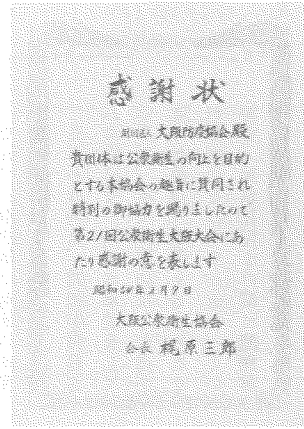 感謝状
財団法人 大阪防疫協会殿
貴団体は公衆衛生の向上を目的
とする本協会の趣旨に賛同され
特別の御協力を賜りましたので
第21回公衆衛生大阪大会にあ
たり感謝の意を表します
昭和 年 月7日
大阪公衆衛生協会
会長 梶原三郎